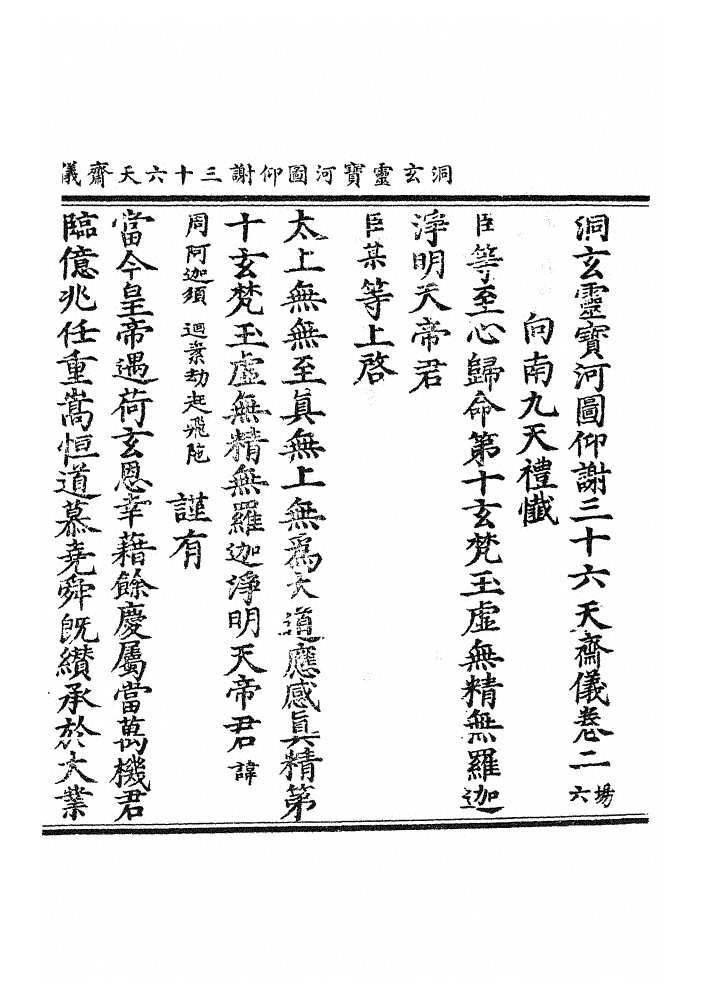 洞玄靈寶河圖仰謝三十六天齋儀
洞玄靈寶河圖仰謝三十六天齋儀卷二 場六
向南九天禮懺
臣等至心歸命第十玄梵王虛無精無羅迦
淨明天帝君
臣某等上啓
太上無無至眞無上無爲大道應感眞精第
十玄梵王虛無精無羅迦淨明天帝君 諱
周阿迦須 迴素劫赱飛陁 謹有
當今皇帝遇荷玄恩幸藉餘慶屬當萬機君
臨億兆任重嵩恒道慕堯舜旣纘承於大業